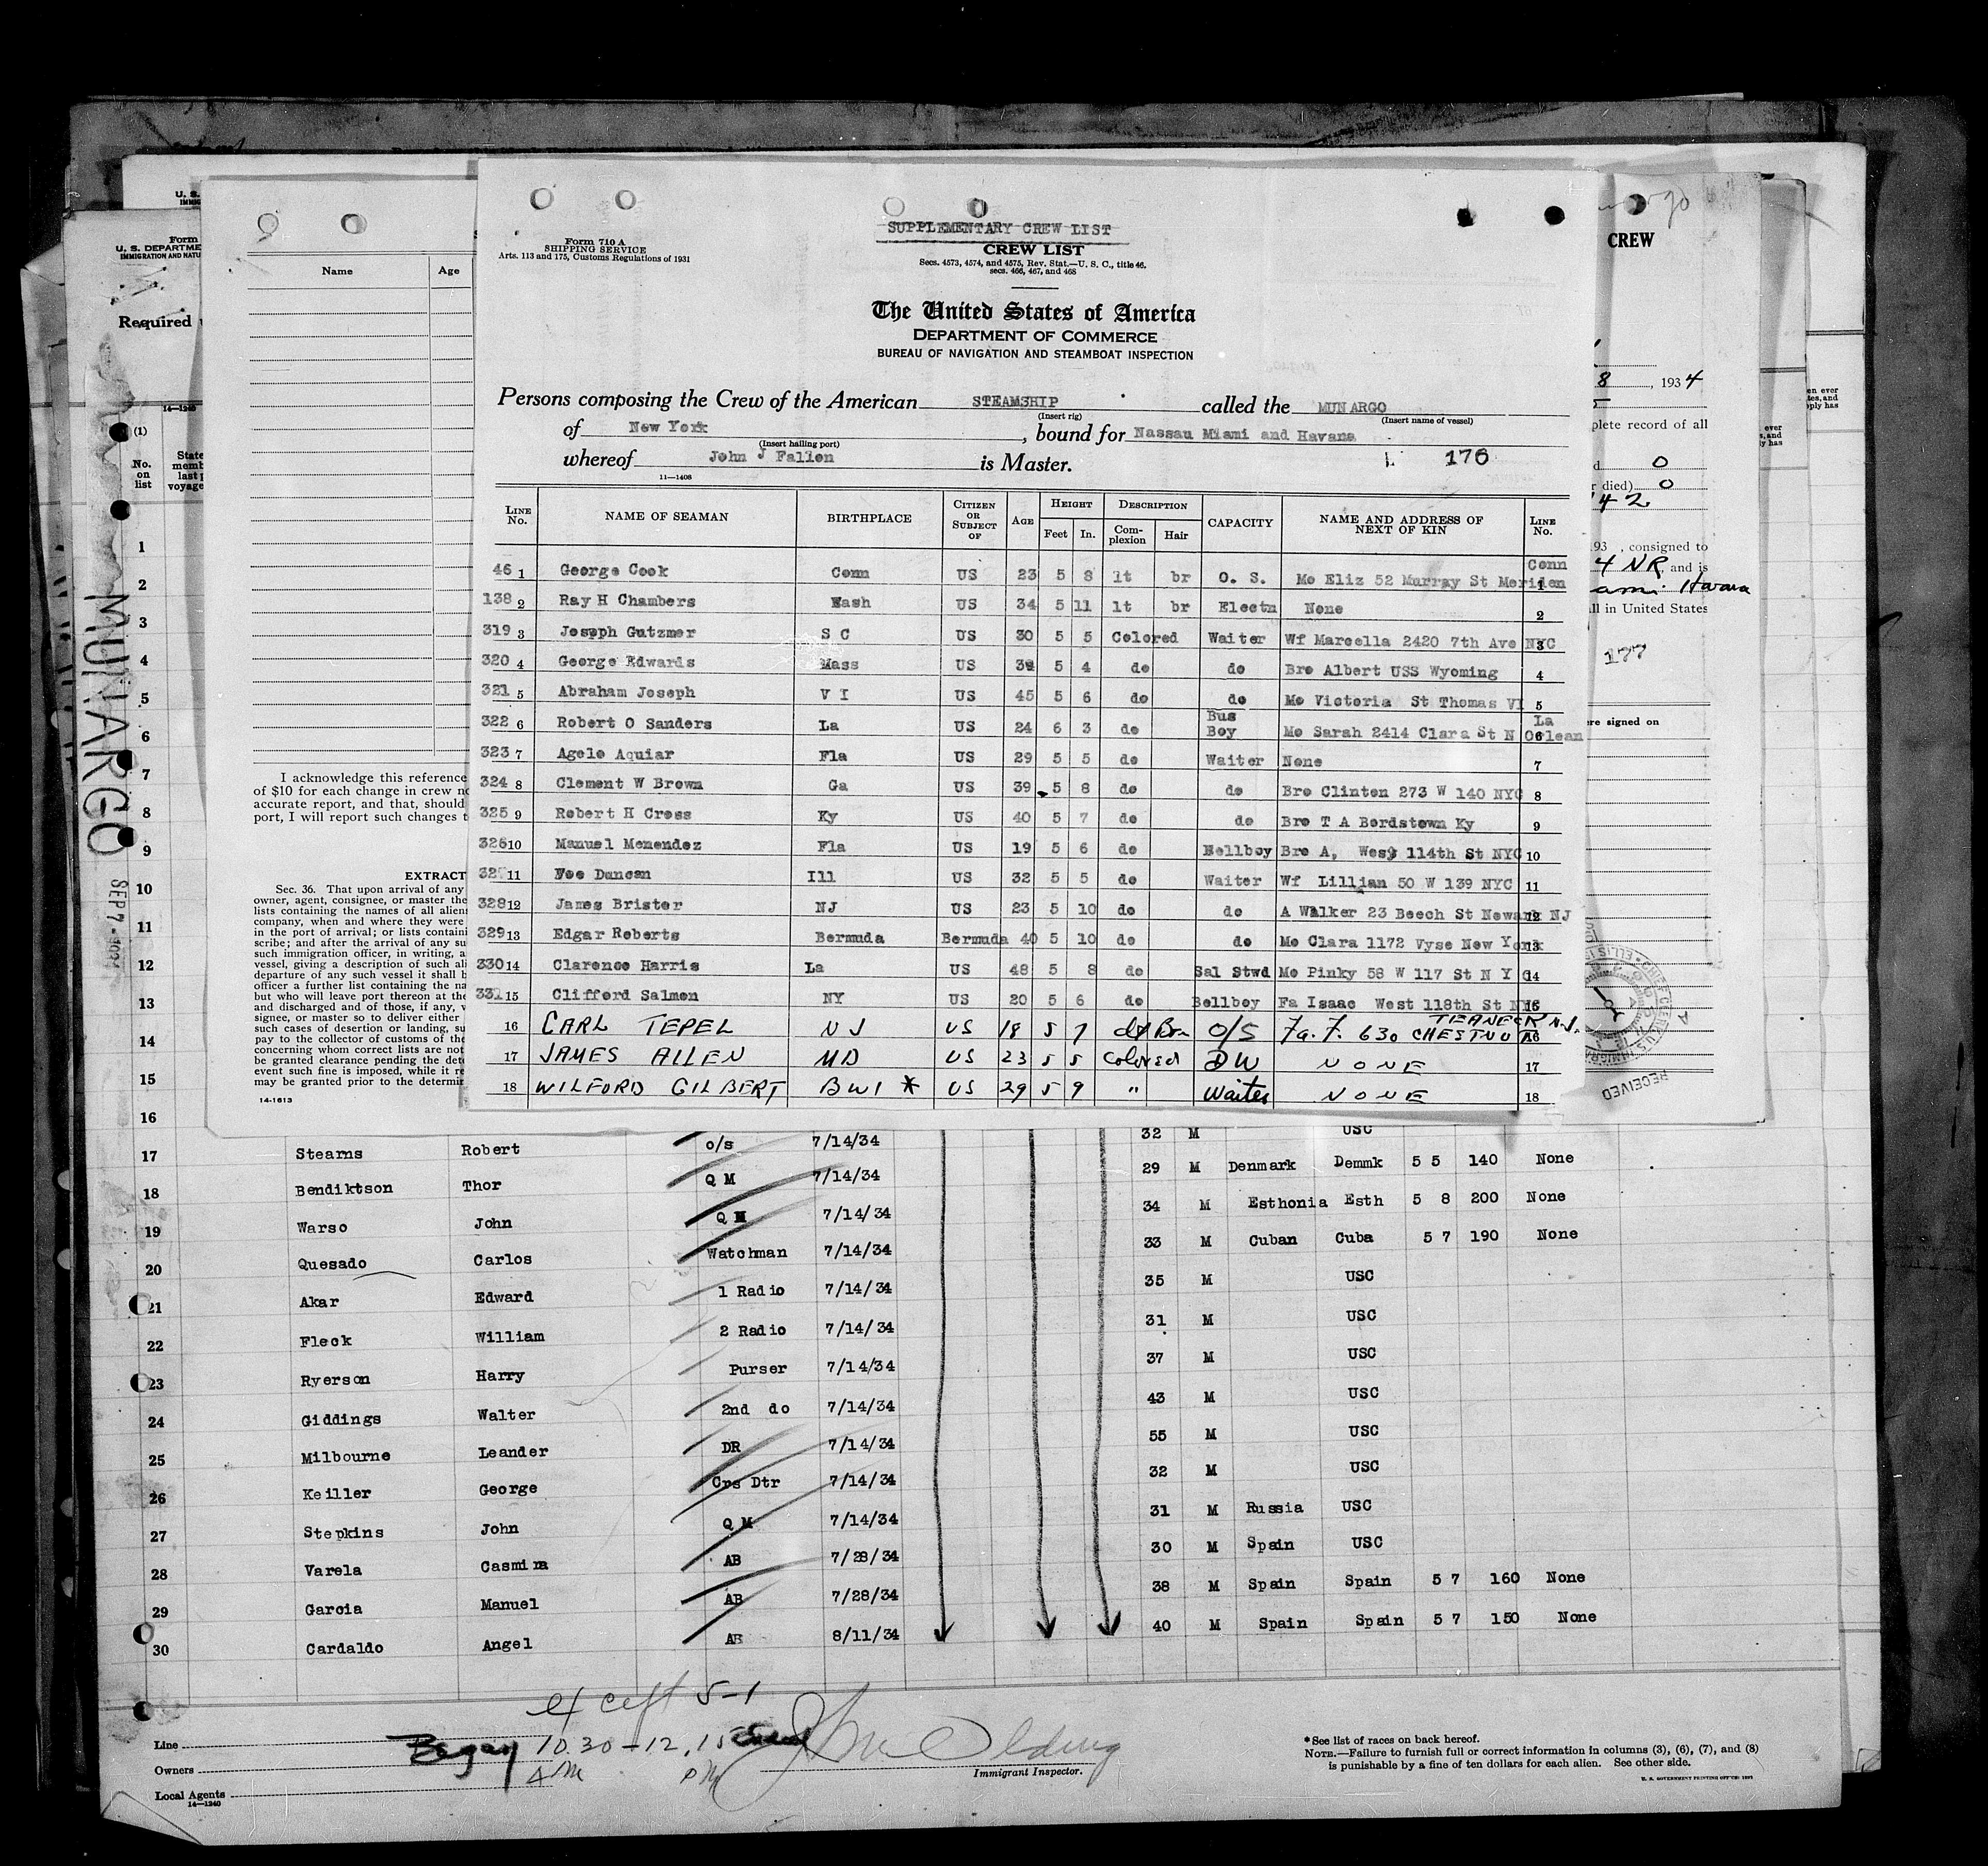 SUPPLEMENTARY CREW LIST
Form 710 A
SHIPPING SERVICE
Arts. 113 and 175, Customs Regulations of 1931
CREW LIST
Secs. 4573, 4574, and 4575, Rev. Stat.—U. S. C., title 46,
secs. 466, 467, and 468
The United States of America
DEPARTMENT OF COMMERCE
BUREAU OF NAVIGATION AND STEAMBOAT INSPECTION
Persons composing the Crew of the American STEAMSHIP called the MUNARGO
(Insert rig) (Insert name of vessel)
of New York, bound for Nassau Miami and Havana
(Insert hailing port)
whereof John J Fallon is Master. 176
11—1408
LINE No. NAME OF SEAMAN BIRTHPLACE CITIZEN OR SUBJECT OF AGE HEIGHT Feet In. DESCRIPTION Complexion Hair CAPACITY NAME AND ADDRESS OF NEXT OF KIN LINE No.
46 1 George Cook Conn US 23 5 8 lt br O. S. Mo Eliz 52 Murray St Meriden Conn 1
138 2 Ray H Chambers Wash US 34 5 11 lt br Electn None 2
319 3 Joseph Gutzmer S C US 30 5 5 Colored Waiter Wf Marcella 2420 7th Ave NYC 3
320 4 George Edwards Mass US 5 4 do do Bro Albert USS Wyoming 4
321 5 Abraham Joseph V I US 45 5 6 do do Mo Victoria St Thomas VI 5
322 6 Robert O Sanders La US 24 6 3 do Bus Boy Mo Sarah 2414 Clara St N Orlean La 6
323 7 Agelo Aquiar Fla US 29 5 5 do Waiter None 7
324 8 Clement W Brown Ga US 39 5 8 do do Bro Clinton 273 W 140 NYC 8
325 9 Robert H Cross Ky US 40 5 7 do do Bro T A Bordstown Ky 9
326 10 Manuel Menendez Fla US 19 5 6 do Bellboy Bro A, West 114th St NYC 10
11 Duncan Ill US 32 5 5 do Waiter Wf Lillian 50 W 139 NYC 11
328 12 James Brister NJ US 23 5 10 do do A Walker 23 Beech St Newark NJ 12
329 13 Edgar Roberts Bermuda Bermuda 40 5 10 do do Mo Clara 1172 Vyse New York 13
330 14 Clarence Harris La US 48 5 8 do Sal Stwd Mo Pinky 58 W 117 St N Y C 14
331 15 Clifford Salmon NY US 20 5 6 do Bellboy Fa Isaac West 118th St NYC 15
16 CARL TEPEL NJ US 18 5 7 Brn O/S Fa. F. 630 CHESTNUT TEANECK N.J. 16
17 JAMES ALLEN MD US 23 5 5 Colored DW NONE 17
18 WILFORD GILBERT BWI * US 29 5 9 " Waiter NONE 18
Form
U. S. DEPARTME
IMMIGRATION AND NATU
Required
14—1240
(1)
No. on list
State
memb
last p
voyage
MUNARGO
SEP 7 - 1934
Name Age
I acknowledge this reference
of $10 for each change in crew no
accurate report, and that, should
port, I will report such changes t
EXTRACT
Sec. 36. That upon arrival of any
owner, agent, consignee, or master the
lists containing the names of all alien
company, when and where they were
in the port of arrival; or lists containi
scribe; and after the arrival of any su
such immigration officer, in writing, a
vessel, giving a description of such ali
departure of any such vessel it shall b
officer a further list containing the na
but who will leave port thereon at the
and discharged and of those, if any, w
signee, or master so to deliver either
such cases of desertion or landing, su
pay to the collector of customs of the
concerning whom correct lists are not
be granted clearance pending the det
event such fine is imposed, while it re
may be granted prior to the determin
14-1613
CREW
8, 1934
plete record of all
0
r died) 0
42
193 , consigned to
4 NR, and is
ami Havana
ll in United States
177
re signed on
RECEIVED
1
2
3
4
5
6
7
8
9
10
11
12
13
14
15
16
32 M USC
17 Stearns Robert o/s 7/14/34 29 M Denmark Demmk 5 5 140 None
18 Bendiktson Thor Q M 7/14/34 34 M Esthonia Esth 5 8 200 None
19 Warso John Q M 7/14/34 33 M Cuban Cuba 5 7 190 None
20 Quesado Carlos Watchman 7/14/34 35 M USC
21 Akar Edward 1 Radio 7/14/34 31 M USC
22 Fleck William 2 Radio 7/14/34 37 M USC
23 Ryerson Harry Purser 7/14/34 43 M USC
24 Giddings Walter 2nd do 7/14/34 55 M USC
25 Milbourne Leander DR 7/14/34 32 M USC
26 Keiller George Crs Dtr 7/14/34 31 M Russia USC
27 Stepkins John Q M 7/14/34 30 M Spain USC
28 Varela Casmira AB 7/28/34 38 M Spain Spain 5 7 160 None
29 Garcia Manuel AB 7/28/34 40 M Spain Spain 5 7 150 None
30 Cardaldo Angel AB 8/11/34
except 5-1
Began 10.30 - 12.15
AM PM
Line
Owners
Local Agents
14—1240
Immigrant Inspector.
*See list of races on back hereof.
NOTE.—Failure to furnish full or correct information in columns (3), (6), (7), and (8)
is punishable by a fine of ten dollars for each alien. See other side.
U. S. GOVERNMENT PRINTING OFFICE